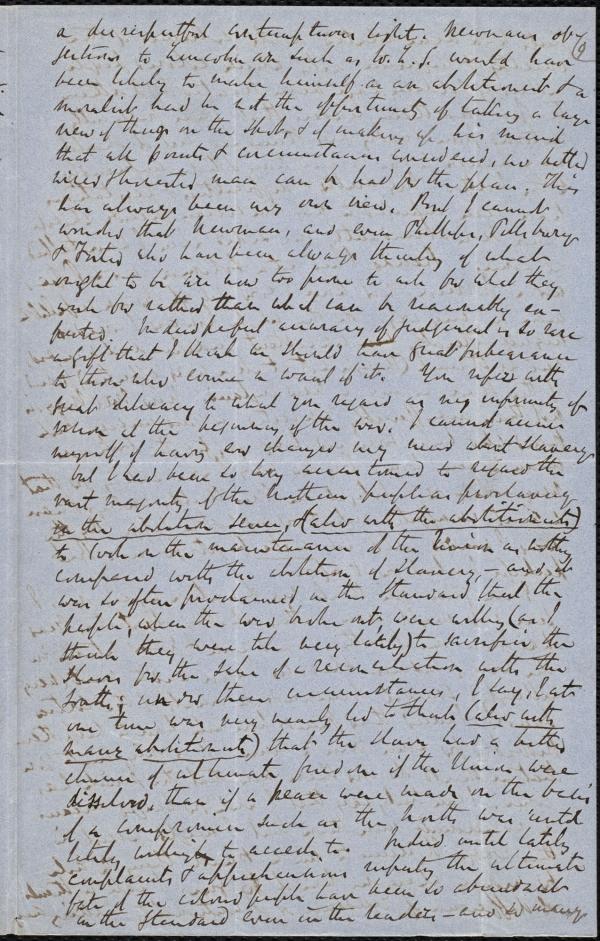 a disrespectful contemptuous light. Newman's ob- 9
jections to Lincoln are such as W. L. G. would have
been likely to make himself as an abolitionist & a
moralist, had he not the opportunity of taking a large
view of things on the spot, & of making up his mind
that all points & circumstances considered, no better
nerved & hearted man can be had for the place. This
has always been my own view. But I cannot
wonder that Newman, and even Phillips, Pillsbury
& Foster who have been always thinking of what
ought to be are now too prone to ask for what they
wish for rather than what can be reasonably ex-
pected. Indeed perfect accuracy of judgement is so rare
a gift that I think we should have great forbearance
to those who evince a want of it. You refer with
great delicacy to what you regard as my infirmity of
vision at the beginning of the war. I cannot accuse
myself of having ever changed my mind about Slavery
but I had been so long accustomed to regard the
vast majority of the Northern people as proslavery
in the abolition sense, (also with the abolitionists)
to look on the maintenance of the Union as nothing
compared with the abolition of Slavery, – and it
was so often proclaimed in the Standard that the
people, when the war broke out, were willing (as I
think they were till very lately) to sacrifice the
slaves for the sake of a reconciliation with the
South; under these circumstances, I say, I at
one time was very nearly led to think (also with
many abolitionists) that the slave had a better
chance of ultimate freedom if the Union were
dissolved, than if a peace were made on the basis
of a compromise such as the North was until
lately willing to accede to. Indeed until lately
complaints & apprehensions respecting the ultimate
fate of the colored people have been so abundant
in the Standard even in the leaders – and so many